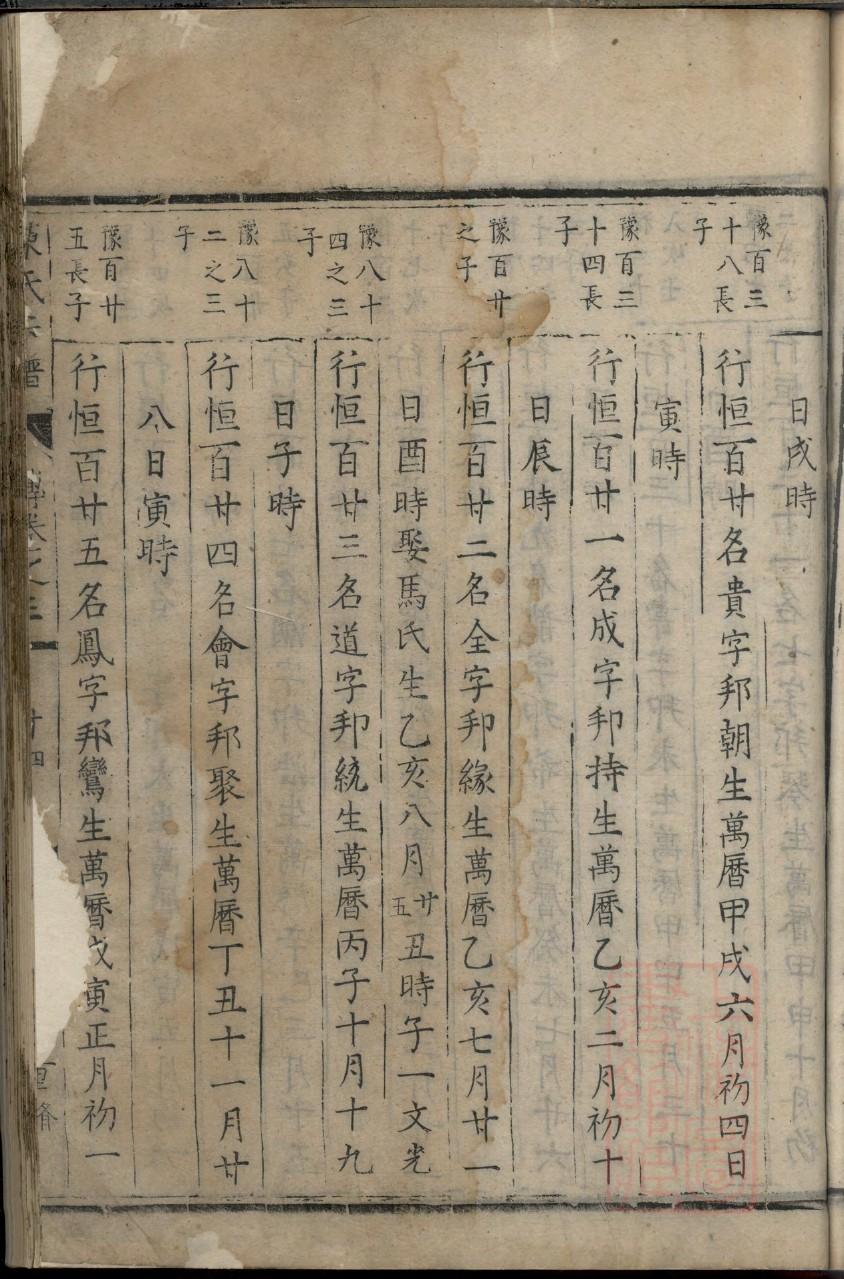 日戌時
豫百三
十八長
子
行恒百廿名貴字邦朝生萬曆甲戌六月初四日
寅時
豫百三
十四長
子
行恒百廿一名成字邦持生萬曆乙亥二月初十
日辰時
豫百廿
之子
行恒百廿二名全字邦緣生萬曆乙亥七月廿一
日酉時娶馬氏生乙亥八月廿五丑時子一文光
豫八十
四之三
子
行恒百廿三名道字邦統生萬曆丙子十月十九
日子時
豫八十
二之三
子
行恒百廿四名會字邦聚生萬曆丁丑十一月廿
八日寅時
豫百廿
五長子
行恒百廿五名鳳字邦鸞生萬曆戊寅正月初一
氏
譜
廿四